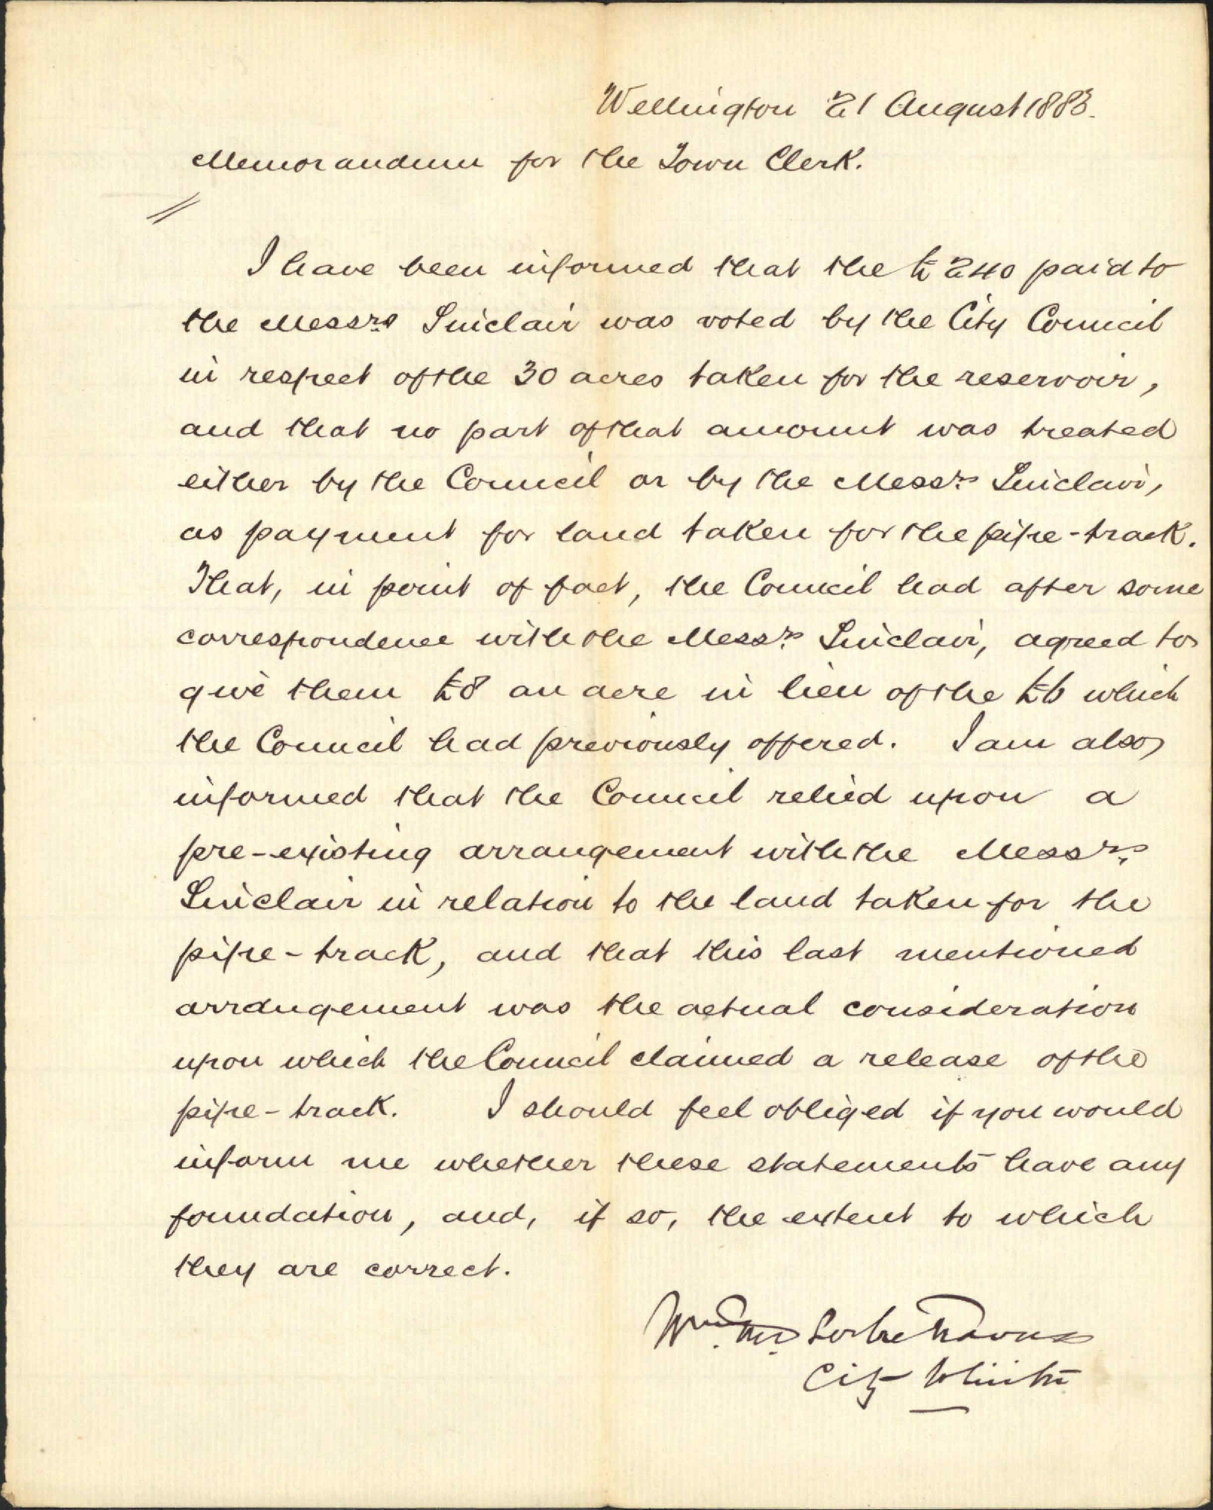 Wellington 21 August 1883.
Memorandum for the Town Clerk.
I have been informed that the £240 paid to
the Messrs Sinclair was voted by the City Council
in respect of the 30 acres taken for the reservoir,
and that no part of that amount was treated
either by the Council or by the Messrs Sinclair,
as payment for land taken for the pipe-track.
That, in point of fact, the Council had after some
correspondence with the Messrs Sinclair, agreed to
give them £8 an acre in lieu of the £6 which
the Council had previously offered. I am also
informed that the Council relied upon a
pre-existing arrangement with the Messrs
Sinclair in relation to the land taken for the
pipe-track, and that this last mentioned
arrangement was the actual consideration
upon which the Council claimed a release of the
pipe-track. I should feel obliged if you would
inform me whether these statements have any
foundation, and, if so, the extent to which
they are correct.
Wm. Thos Locke Travers
City Solicitor